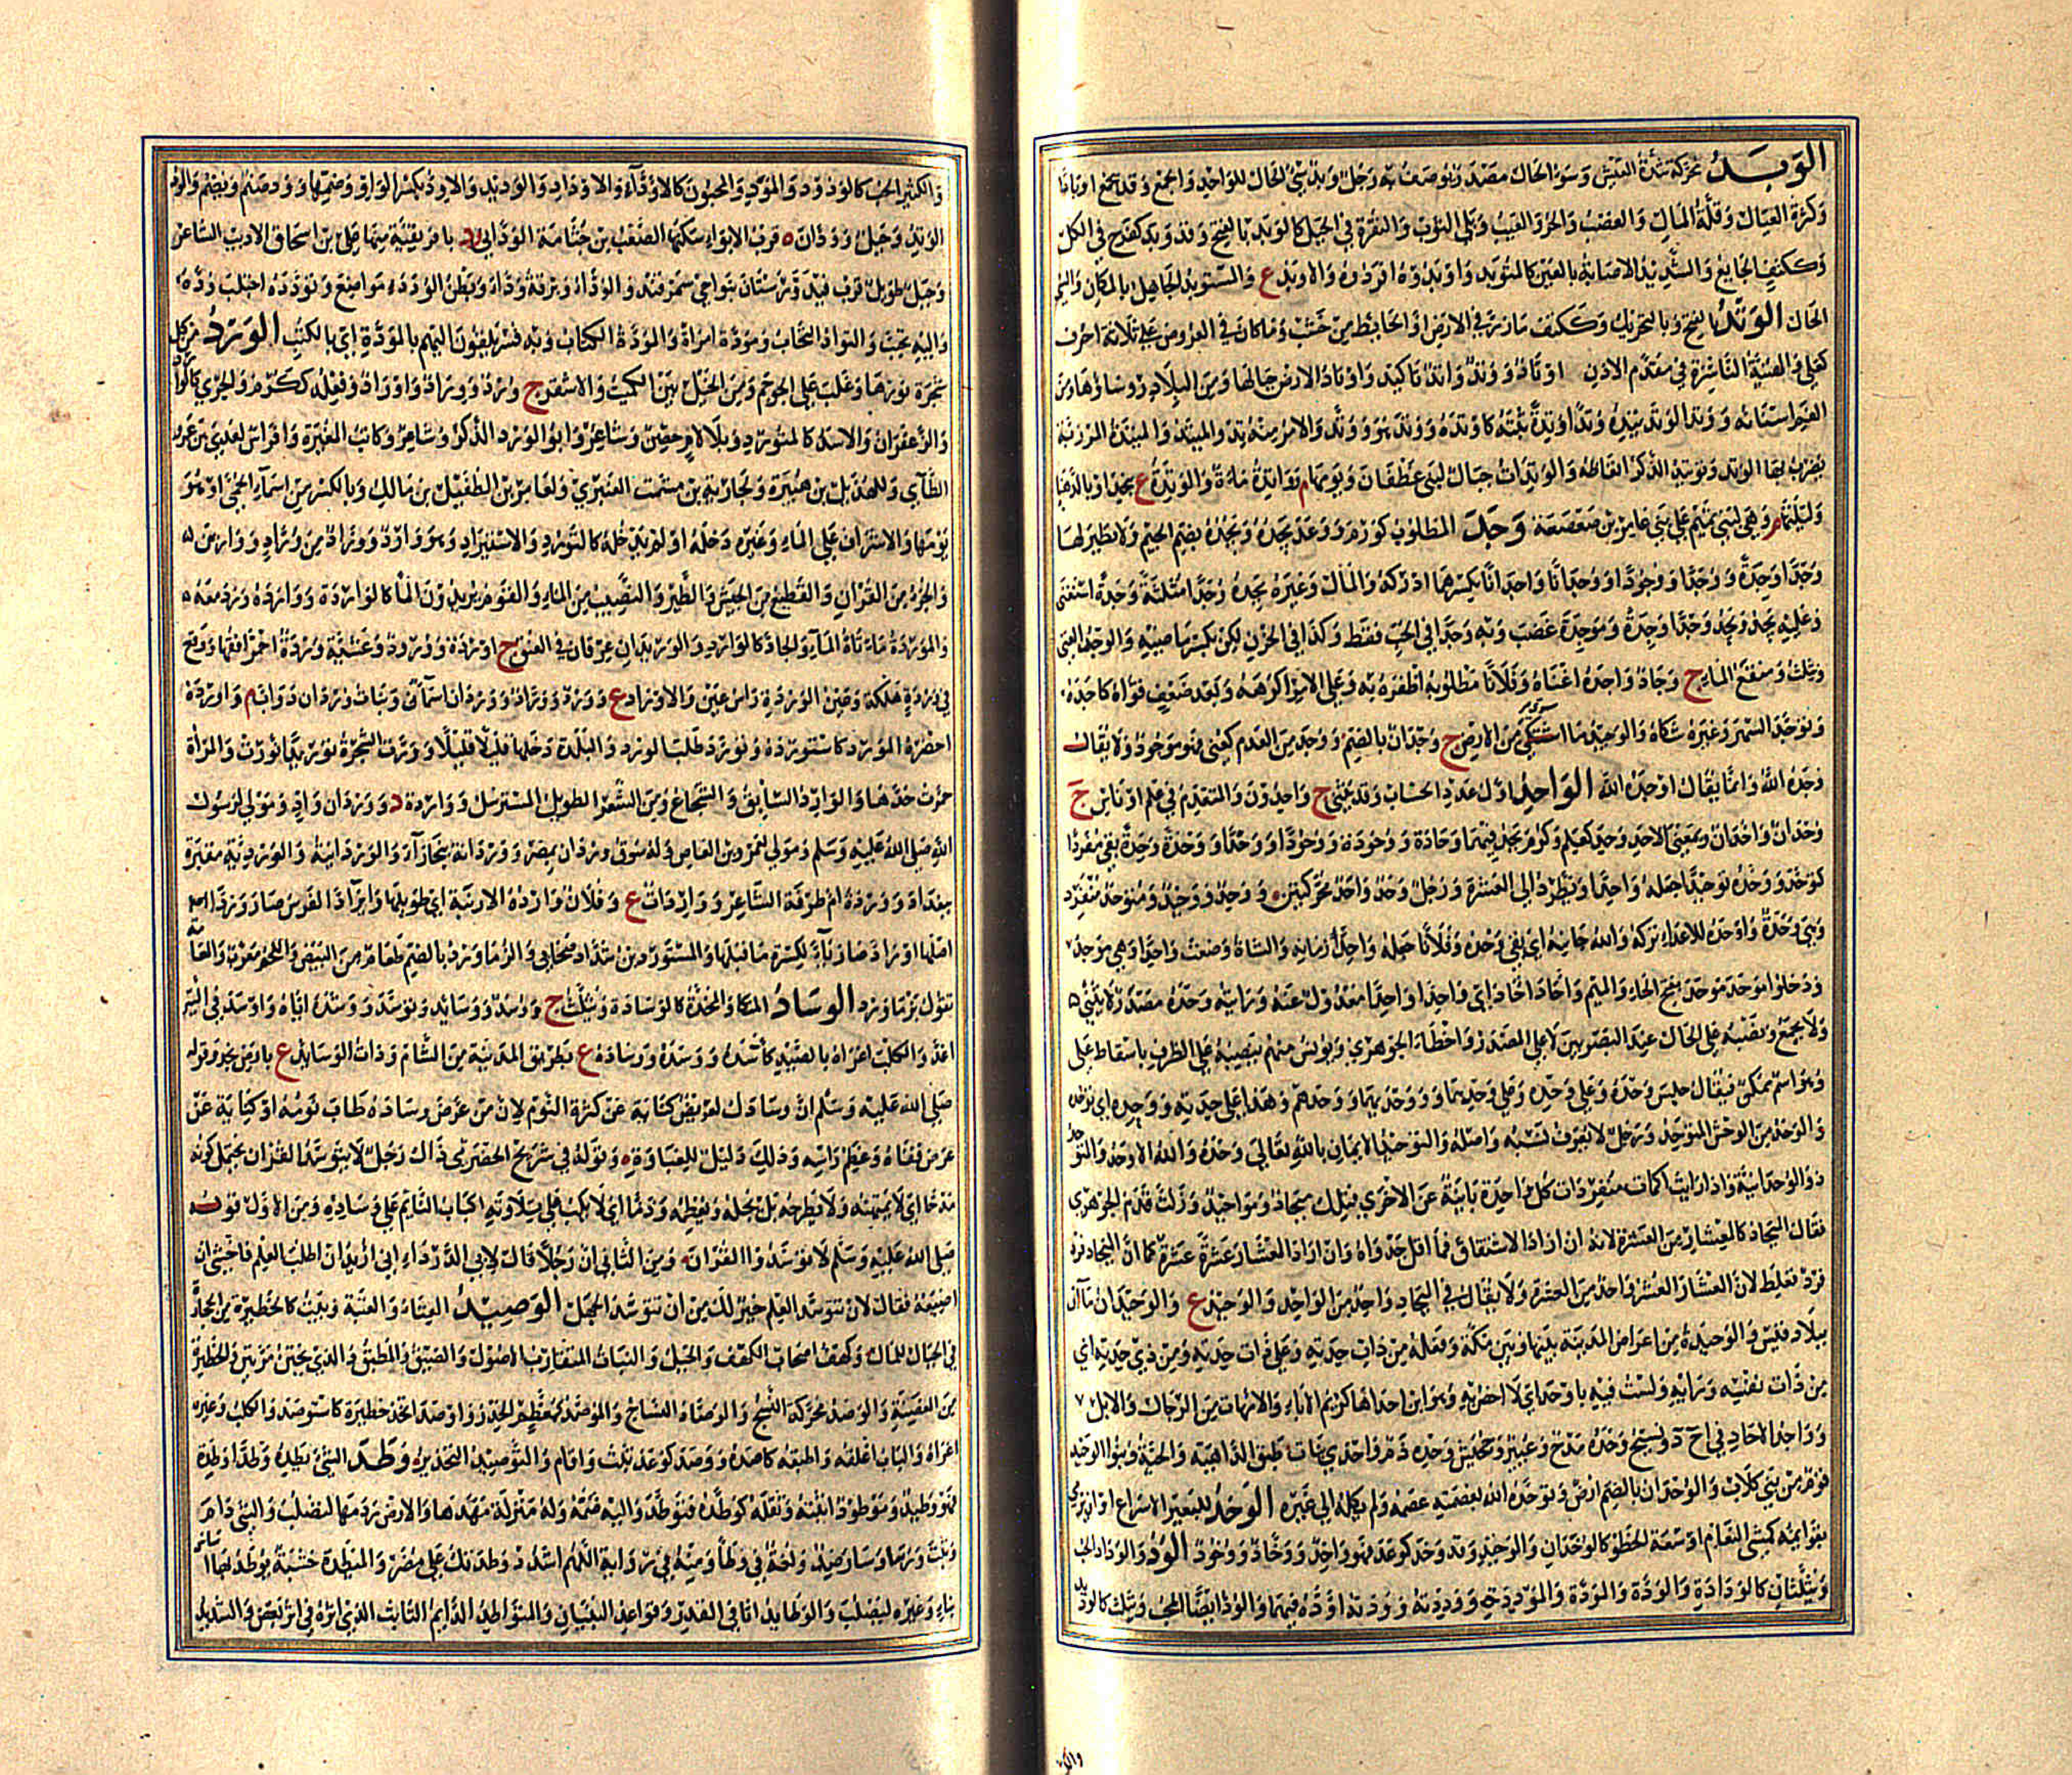 الوَبَدُ محركة شدة العيش وسوء الحال مصدر يوصف به رجل وبد سيئ الحال للواحد والجمع وقد يجمع اوبادا
وكثرة العيال وقلة المال والغضب والحر والعيب وبلى الثوب والنقرة في الجبل كالوبد بالفتح وقد وبد كفرح في الكل
وككتف الجايع والشديد الاصابة بالعين كالمتوبد واوبدوه افردوه والاوبد ع والمستوبد الجاهل بالمكان والسيئ
الحال الوتد بالفتح وبالتحريك وككتف مارز في الارض او الحايط من خشب وما كان في العروض على ثلاثة احرف
كعلى والهنية الناشزة في مقدم الاذن اوتاد ووتد واتد تاكيد واوتاد الارض جبالها ومن البلاد روساوها ومن
الفم اسنانه ووتد الوتد يتده وتدا وتدة ثبته كاوتده ووتد هو ووتد والامر منه تد والميتد والميتدة المرزبة
يضرب بها الوتد وتوتيد الذكر انعاظه والوتدات جبال لبنى عطفان ويومها م تواتدة ماءة والوتدة ع بنجد او بالدهنا
وليلتها م وهي لبني تميم على بني عامر بن صعصعة وجد المطلوب كوعد وورم يجده ويجده بضم الجيم ولا نظير لها
وجدا وجدة ووجدا ووجودا ووجدانا واجدانا بكسرهما ادركه والمال وغيره يجده وجدا مثلثة وجدة استغنى
وعليه يجد ويجد وجدا وجدة وموجدة غضب وبه وجدا في الحب فقط وكذا في الحزن لكن بكسر ماضيه والوجد الغنى
ويثلث ومنقع الماء ج وجاد واجده اغناه وفلانا مطلوبه اظفره به وعلى الامر اكرهه وبعد ضعف قواه كاجده
وتوجد السهر وغيره شكاه والوجيد ما استوى من الارض ج وجدان بالضم ووجد من العدم كعنى فهو موجود ولا يقال
وجده الله وانما يقال اوجده الله الواحد اول عدد الحساب وقد يثنى ج واحدون والمتقدم في علم او باس ج
وحدان واحدان وبمعنى الاحد وحد كعلم وكرم يحد فيهما وحادة ووحودة ووحودا ووحدا ووحدة وحدة بقي مفردا
كتوحد ووحده توحيدا جعله واحدا ويطرد الى العشرة ورجل وحد واحد محركتين ووحد ووحيد ومتوحد منفرد
وهي وحدة واوحده للاعداء تركه والله جانبه اي بقي وحده وفلانا جعله واحد زمانه والشاة وضعت واحدا وهي موحد
ودخلوا موحد موحد بفتح الحاء والميم واحاد احاد اي واحدا واحدا معدول عنه ورايته وحده مصدر لا يثنى
ولا يجمع ونصبه على الحال عند البصريين لا على المصدر واخطا الجوهري ويونس منهم ينصبه على الظرف باسقاط على
وهو اسم ممكن فيقال جلس وحده وعلى وحده وعلى وحدهما ووحديهما ووحدهم وهذا على حدته ووحده اي توحده
والوحد من الوحش المتوحد ورجل لا يعرف نسبه واصله والتوحيد الايمان بالله تعالى وحده والله الاوحد والمتوحد
ذو الوحدانية واذا رايت اكمات منفردات كل واحدة باينة عن الاخرى فتلك ميحاد ومواحيد وزلت قدم الجوهري
فقال الميحاد كالمعشار من العشرة لانه ان اراد الاشتقاق فما اقل جدواه وان اراد المعشار عشرة عشرة كما ان الميحاد فرد
فرد فغلط لان المعشار والعشر واحد من العشرة ولا يقال في الميحاد واحد من الواحد والوحيد ع والوحيدان ماآن
ببلاد قيس والوحيدة من اعراض المدينة بينها وبين مكة وفعله من ذات حدته وعلى ذات حدته ومن ذي حدته اي
من ذات نفسه ورايه ولست فيه باوحد اي لا اخص به وهو ابن احداها كريم الآباء والامهات من الرجال والابل
وواحد الاحاد في ا ح د ونسيج وحده مدح وعيير وجحيش وحده ذم واحدى بنات طبق الداهية والحية وبنو الوحيد
قوم من بني كلاب والوحدان بالضم ارض وتوحده الله بعصمته عصمه ولم يكله الى غيره الوخد للبعير الاسراع او ان يرمي
بقوايمه كمشي النعام او سعة الخطو كالوخدان والوخيد وقد وخد كوعد فهو واخد ووخاد ووخود الود والوداد الحب
ويثلثان كالودادة والودة والمودة والموددة ووددته ووددته اوده فيهما والود ايضا المحب ويثلث كالوديد
والكثير الحب كالودود والمود والمحبون كالاودة والاوداء والاوداد والوديد والاود بكسر الواو وضمها وود صنم ويضم والود
الوتد وجبل وودان ة قرب الابواء سكنها الصعب بن جثامة الوداني ود بافريقية منها على بن اسحاق الاديب الشاعر
وجبل طويل قرب فيد ورستاق بنواحي سمرقند والوداء وبرقة وداء وبطن الودداء مواضع وتودده اجتلب وده
واليه تحبب والتواد التحاب ومودة امراة والمودة الكتاب وبه فسر تلقون اليهم بالمودة اي بالكتب الورد من كل
شجرة نورها وغلب على الحوجم ومن الخيل بين الكميت والاشقر ج ورد ووراد واوراد وفعله ككرم والجري كالوارد
والزعفران والاسد كالمتورد وبلا لام حصن وشاعر وابو الورد الذكر وشاعر وكاتب المغيرة وافراس لعدي بن عمرو
الطاي وللهذيل بن هبيرة ولجارية بن مشمت العنبري ولعامر بن الطفيل بن مالك وبالكسر من اسماء الحمى او هو
يومها والاشراف على الماء وغيره دخله او لم يدخله كالتورد والاستيراد وهو وارد ووراد من وراد وواردين
والجزء من القران والقطيع من الجيش والطير والنصيب من الماء والقوم يريدون الماء كالواردة وواردة ورد معه
والموردة ماتاة الماء والجادة كالوارد والوريدان عرقان في العنق ج اوردة وورود وعشية وردة احمر افقها ووقع
في وردة هلكة وعين الوردة راس عين والاوراد ع وورد ووراد ووردان اسماء وبنات وردان دواب م واورده
احضره المورد كاستورده وتورد طلب الورد والبلدة دخلها قليلا قليلا ووردت الشجرة توريدا نورت والمراة
حمرت خدها والوارد السابق والشجاع ومن الشعر الطويل المسترسل وواردة د ووردان واد ومولى لرسول
الله صلى الله عليه وسلم ومولى لعمرو بن العاص وله سوق وردان بمصر ووردانة ببخارآء والوردانية والوردية مقبرة
ببغداد ووردة ام طرفة الشاعر وواردات ع وفلان وارد الارنبة اي طويلها وايراد الفرس صار وردا
اصلها اوراد صارت ياء لكسرة ما قبلها والمستورد بن شداد صحابي والزماورد بالضم طعام من البيض واللحم معرب والعامة
تقول بزماورد الوساد المتكا والمخدة كالوسادة ويثلث ج وسد ووسايد وتوسد ووسده اياه واوسد في السير
اغذ والكلب اغراه بالصيد كآسده ووسده ووسادة ع بطريق المدينة من الشام وذات الوسايد ع بارض نجد وقوله
صلى الله عليه وسلم ان وسادك لعريض كناية عن كثرة النوم لان من عرض وساده طاب نومه او كناية عن
عرض قفاه وعظم راسه وذلك دليل الغباوة وقوله في شريح الحضرمي ذاك رجل لا يتوسد القران يحتمل كونه
مدحا اي لا يمتهنه ولا يطرحه بل يجله ويعظمه وذما اي لا يكب على تلاوته اكباب النايم على وساده ومن الاول قوله
صلى الله عليه وسلم لا توسدوا القران ومن الثاني ان رجلا قال لابي الدرداء اني اريد ان اطلب العلم فاخشى ان
اضيعه فقال لان تتوسد العلم خير لك من ان تتوسد الجهل الوصيد الفناء والعتبة وبيت كالحظيرة من الحجارة
في الجبال للمال وكهف اصحاب الكهف والجبل والنبات المتقارب الاصول والضيق والمطبق والذي يختن مرتين والحظيرة
من الغصنة والوصد محركة النسج والوصاد النساج والموصد كمعظم الخدر واوصد اتخذ حظيرة كاستوصد والكلب وغيره
اغراه والباب اغلقه واطبقه كاصده ووصد كوعد ثبت واقام والتوصيد التحذير وطد الشيء يطده وطدا وطدة
فهو وطيد وموطود اثبته وثقله كوطده فتوطد واليه ضمه وله منزلة مهدها والارض ردمها لتصلب والشيء دام
وثبت ورسا وسار ضد ولغة في وطا ومنه في رواية اللهم اشدد وطدتك على مضر والميطدة خشبة يوطد بها اساس
بناء وغيره ليصلب والوطايد اثافي القدر وقواعد البنيان والمتواطد الدايم الثابت الذي اثره في اثر بعض والشديد